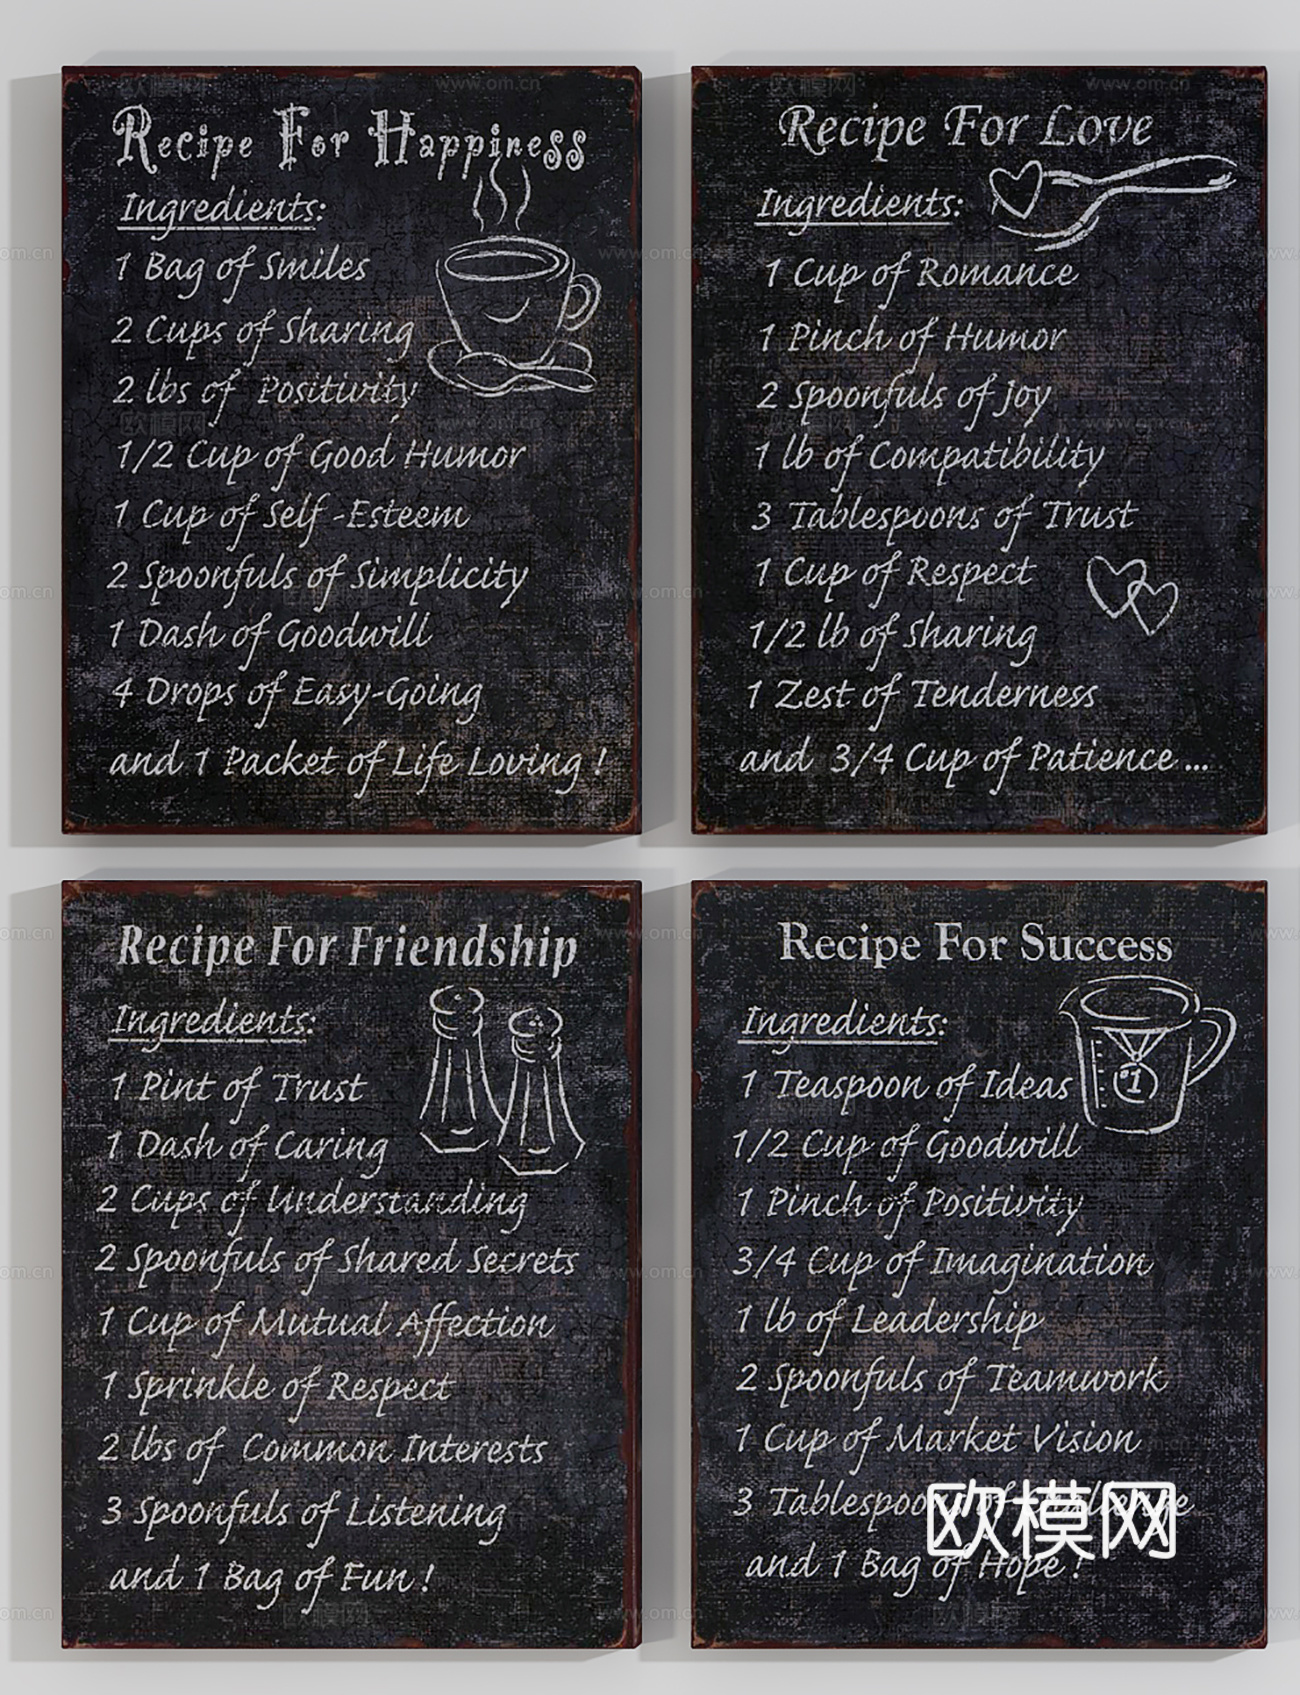 Recipe For Happiness
Ingredients:
1 Bag of Smiles
2 Cups of Sharing
2 lbs of Positivity
1/2 Cup of Good Humor
1 Cup of Self-Esteem
2 Spoonfuls of Simplicity
1 Dash of Goodwill
4 Drops of Easy-Going
and 1 Packet of Life Loving !
Recipe For Love
Ingredients:
1 Cup of Romance
1 Pinch of Humor
2 Spoonfuls of Joy
1 lb of Compatibility
3 Tablespoons of Trust
1 Cup of Respect
1/2 lb of Sharing
1 Zest of Tenderness
and 3/4 Cup of Patience ...
Recipe For Friendship
Ingredients:
1 Pint of Trust
1 Dash of Caring
2 Cups of Understanding
2 Spoonfuls of Shared Secrets
1 Cup of Mutual Affection
1 Sprinkle of Respect
2 lbs of Common Interests
3 Spoonfuls of Listening
and 1 Bag of Fun !
Recipe For Success
Ingredients:
#1
1 Teaspoon of Ideas
1/2 Cup of Goodwill
1 Pinch of Positivity
3/4 Cup of Imagination
1 lb of Leadership
2 Spoonfuls of Teamwork
1 Cup of Market Vision
3 Tablespoons of
and 1 Bag of Hope !
欧模网
www.om.cn